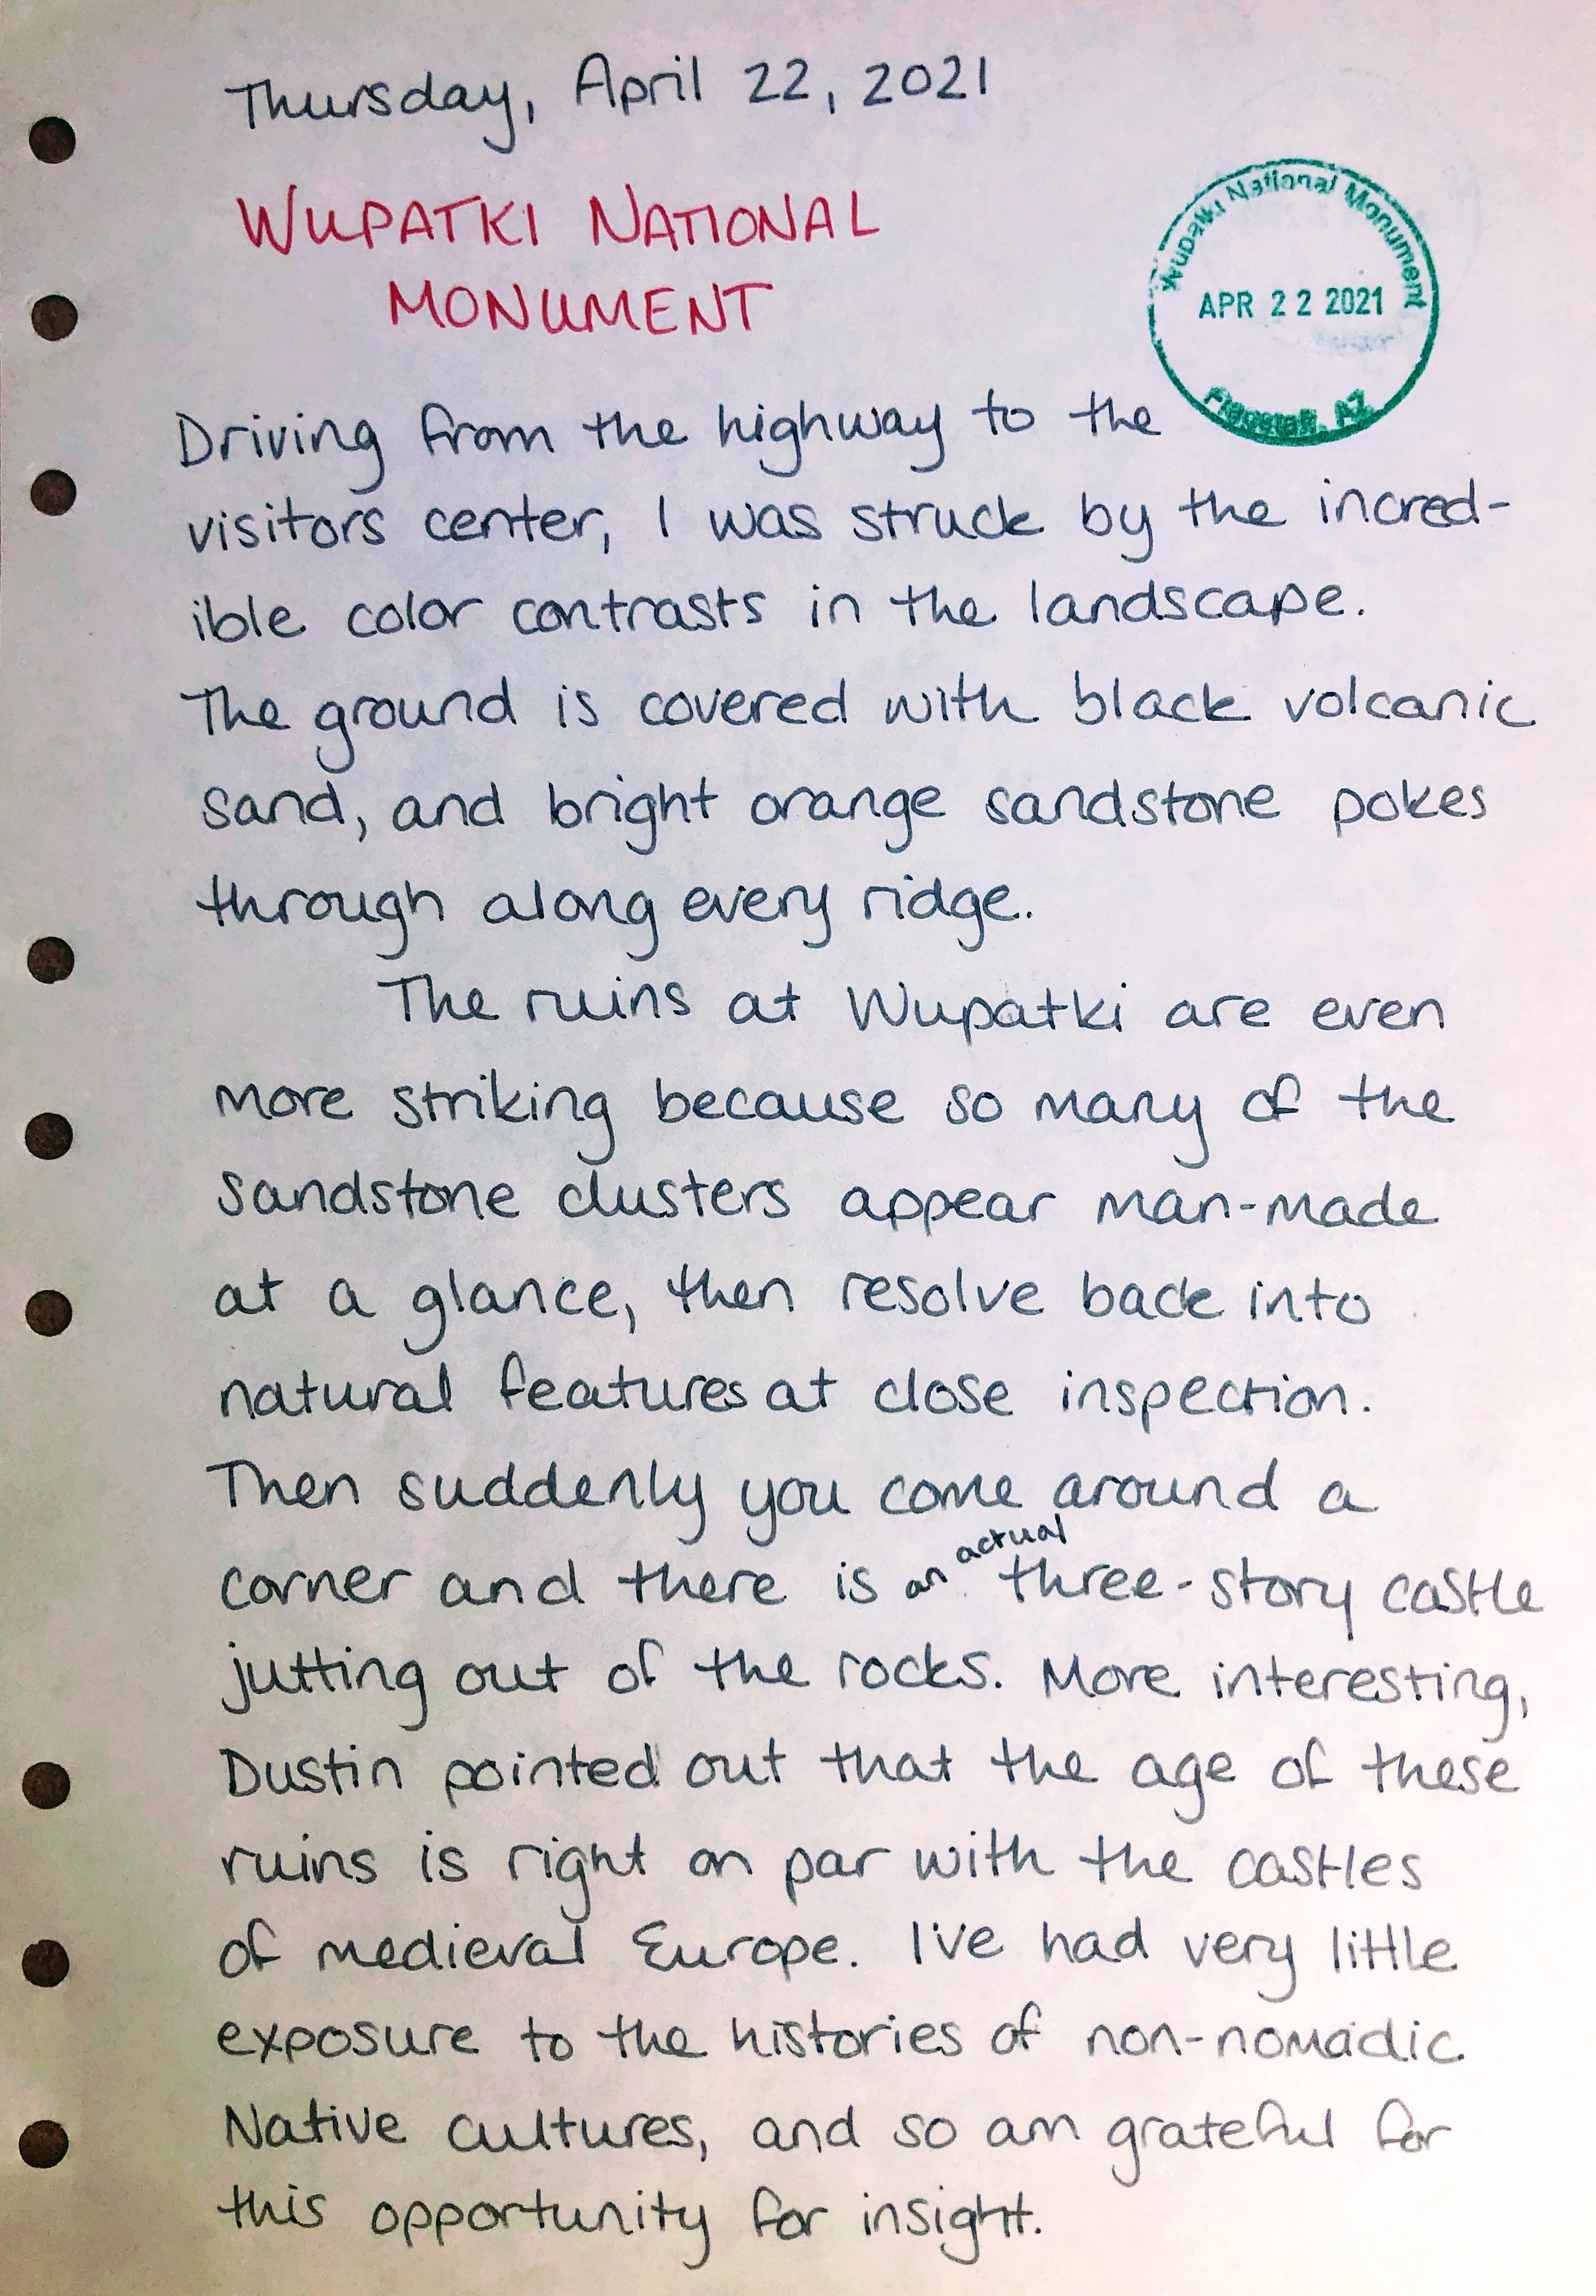 Thursday, April 22, 2021
WUPATKI NATIONAL
MONUMENT
Wupatki National Monument
APR 22 2021
Flagstaff, AZ
Driving from the highway to the
visitors center, I was struck by the incred-
ible color contrasts in the landscape.
The ground is covered with black volcanic
sand, and bright orange sandstone pokes
through along every ridge.
The ruins at Wupatki are even
more striking because so many of the
sandstone clusters appear man-made
at a glance, then resolve back into
natural features at close inspection.
Then suddenly you come around a
corner and there is an actual three-story castle
jutting out of the rocks. More interesting,
Dustin pointed out that the age of these
ruins is right on par with the castles
of medieval Europe. I've had very little
exposure to the histories of non-nomadic
Native cultures, and so am grateful for
this opportunity for insight.